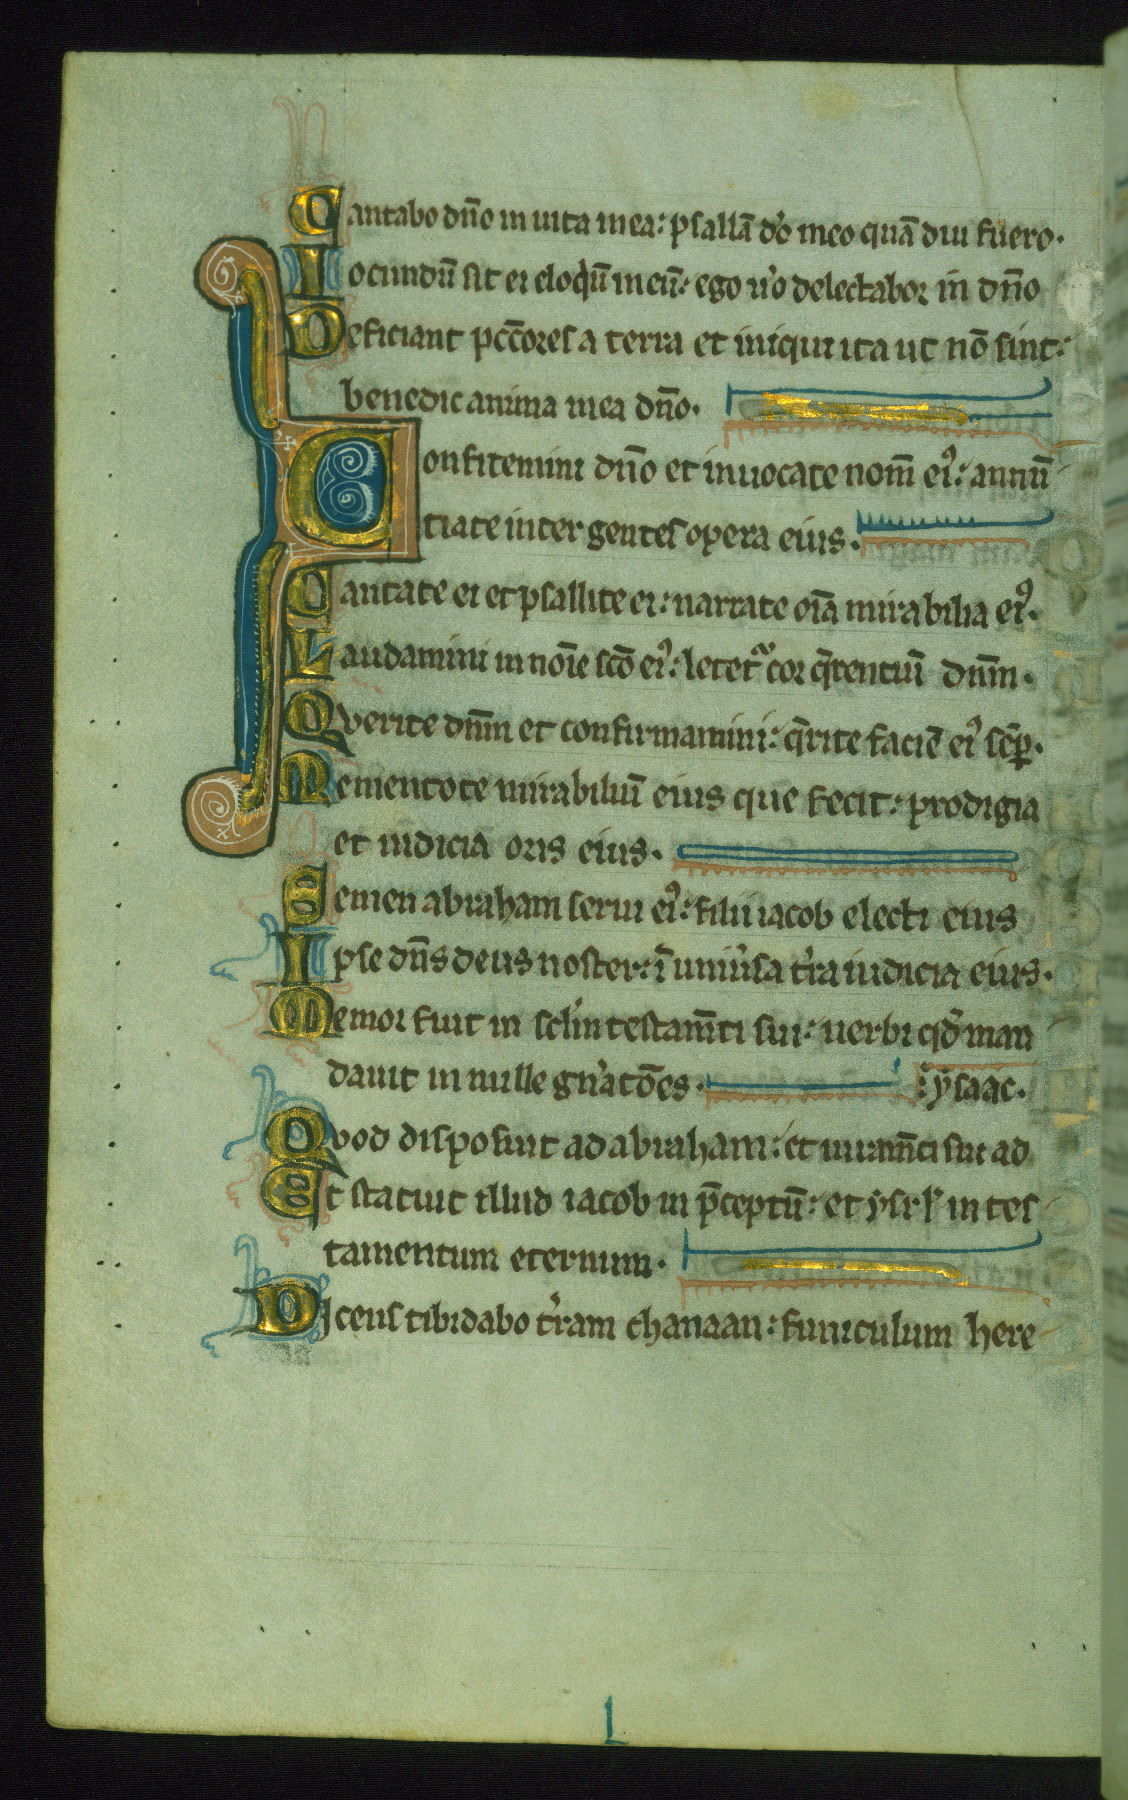 Cantabo dño in uita mea: psallā dõ meo quā diu fuero.
Iocundū sit ei eloqũ meū: ego ũo delectabor in dño
Deficiant pccōres a terra et iniqui ita ut nō sint:
benedic anima mea dño.
Confitemini dño et inuocate nom̄ ei⁹: annū
tiate inter gentes opera eius.
Cantate ei et psallite ei: narrate oīa mirabilia ei⁹.
Laudamini in noīe scō ei⁹: letetᷓ cor q̄rentiū dnm̄.
Querite dnm̄ et confirmamini: q̄rite faciē ei⁹ sēp̱.
Mementote mirabiliū eius que fecit: prodigia
et iudicia oris eius.
Semen abraham serui ei⁹: filii iacob electi eius
Ipse dñs deus noster: ī uniũsa tr̃a iudicia eius.
Memor fuit in sclm̃ testam̄ti sui: uerbi qd̃ man
dauit in mille gñatōes. : ysaac.
Quod disposuit ad abraham: et iuram̄ti sui ad
Et statuit illud iacob in p̄ceptū: et ysrl̃ in tes
tamentum eternum.
Dicens tibi dabo tr̃am chanaan: funiculum here
L